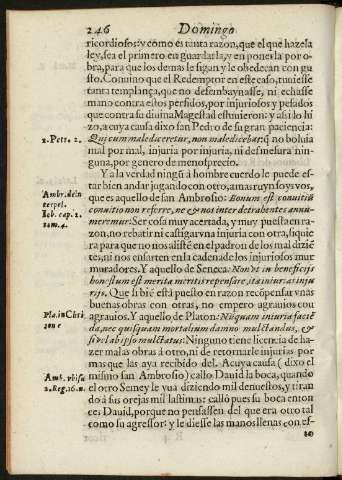 246 Domingo
ricordiosos: y como es tanta razon, que el que haze la
ley, sea el primero en guardarla, y en ponerla por o-
bra, para que los demas le sigan y le obedezcan con gu
sto. Conuino que el Redemptor en este caso, tuuiesse
tanta templança, que no desembaynasse, ni echasse
mano contra estos perfidos, por injuriosos y pesados
que contra su diuina Magestad estuuieron: y assi lo hi
zo, a cuya causa dixo san Pedro de su gran paciencia:
2. Petr. 2.
Qui cum malediceretur, non maledicebat: q̃ no boluia
mal por mal, injuria por injuria, ni desmesura nin-
guna, por genero de menosprecio.
Y a la verdad ningũ a hombre cuerdo le puede es-
tar bien andar jugando con otro,
que es aquello de san Ambrosio: Bonum est conuitiũ
conuitio non referre, ne & nos inter detrahentes annu-
meremur: Ser cosa muy acertada, y muy puesta en ra-
zon, no rebatir ni castigar vna injuria con otra, siquie
ra para que no nos alistẽ en el padron de los mal dizie
tes, ni nos ensarten en la cadena de los injuriosos mur
muradores. Y aquello de Seneca: Non vt in beneficijs
honestum est merita meritis repensare, ita iniurias inju
rijs. Que si biẽ està puesto en razon recõpensar vnas
buenas obras con otras, no empero agrauios con
agrauios. Y aquello de Platon: Nũquam iniuria faciẽ
da, nec quisquam mortalium damno mulctandus, &
si ab ipso mulctatus: Ninguno tiene licencia de ha-
zer malas obras à otro, ni de retornarle injurias por
mas que las aya recibido del. A cuya causa (dixo el
mismo san Ambrosio) callò Dauid la boca, quando
el otro Semey le yua diziendo mil denuestos, y tiran
do à sus orejas mil lastimas: callò pues su boca enton
ces Dauid, porque no pensassen del que era otro tal
como su agressor: y le diesse las manos llenas con es-